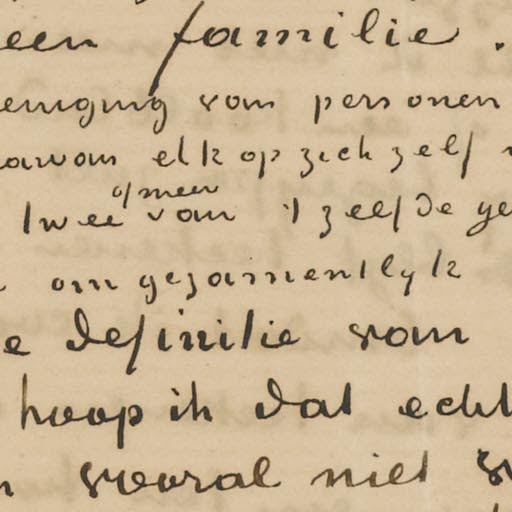 een familie.
eeniging van personen
aarvan elk op zich zelf
of meer
twee van 't zelfde ge
om gezamentlyk
e definitie van
hoop ik dat echt
vooral niet